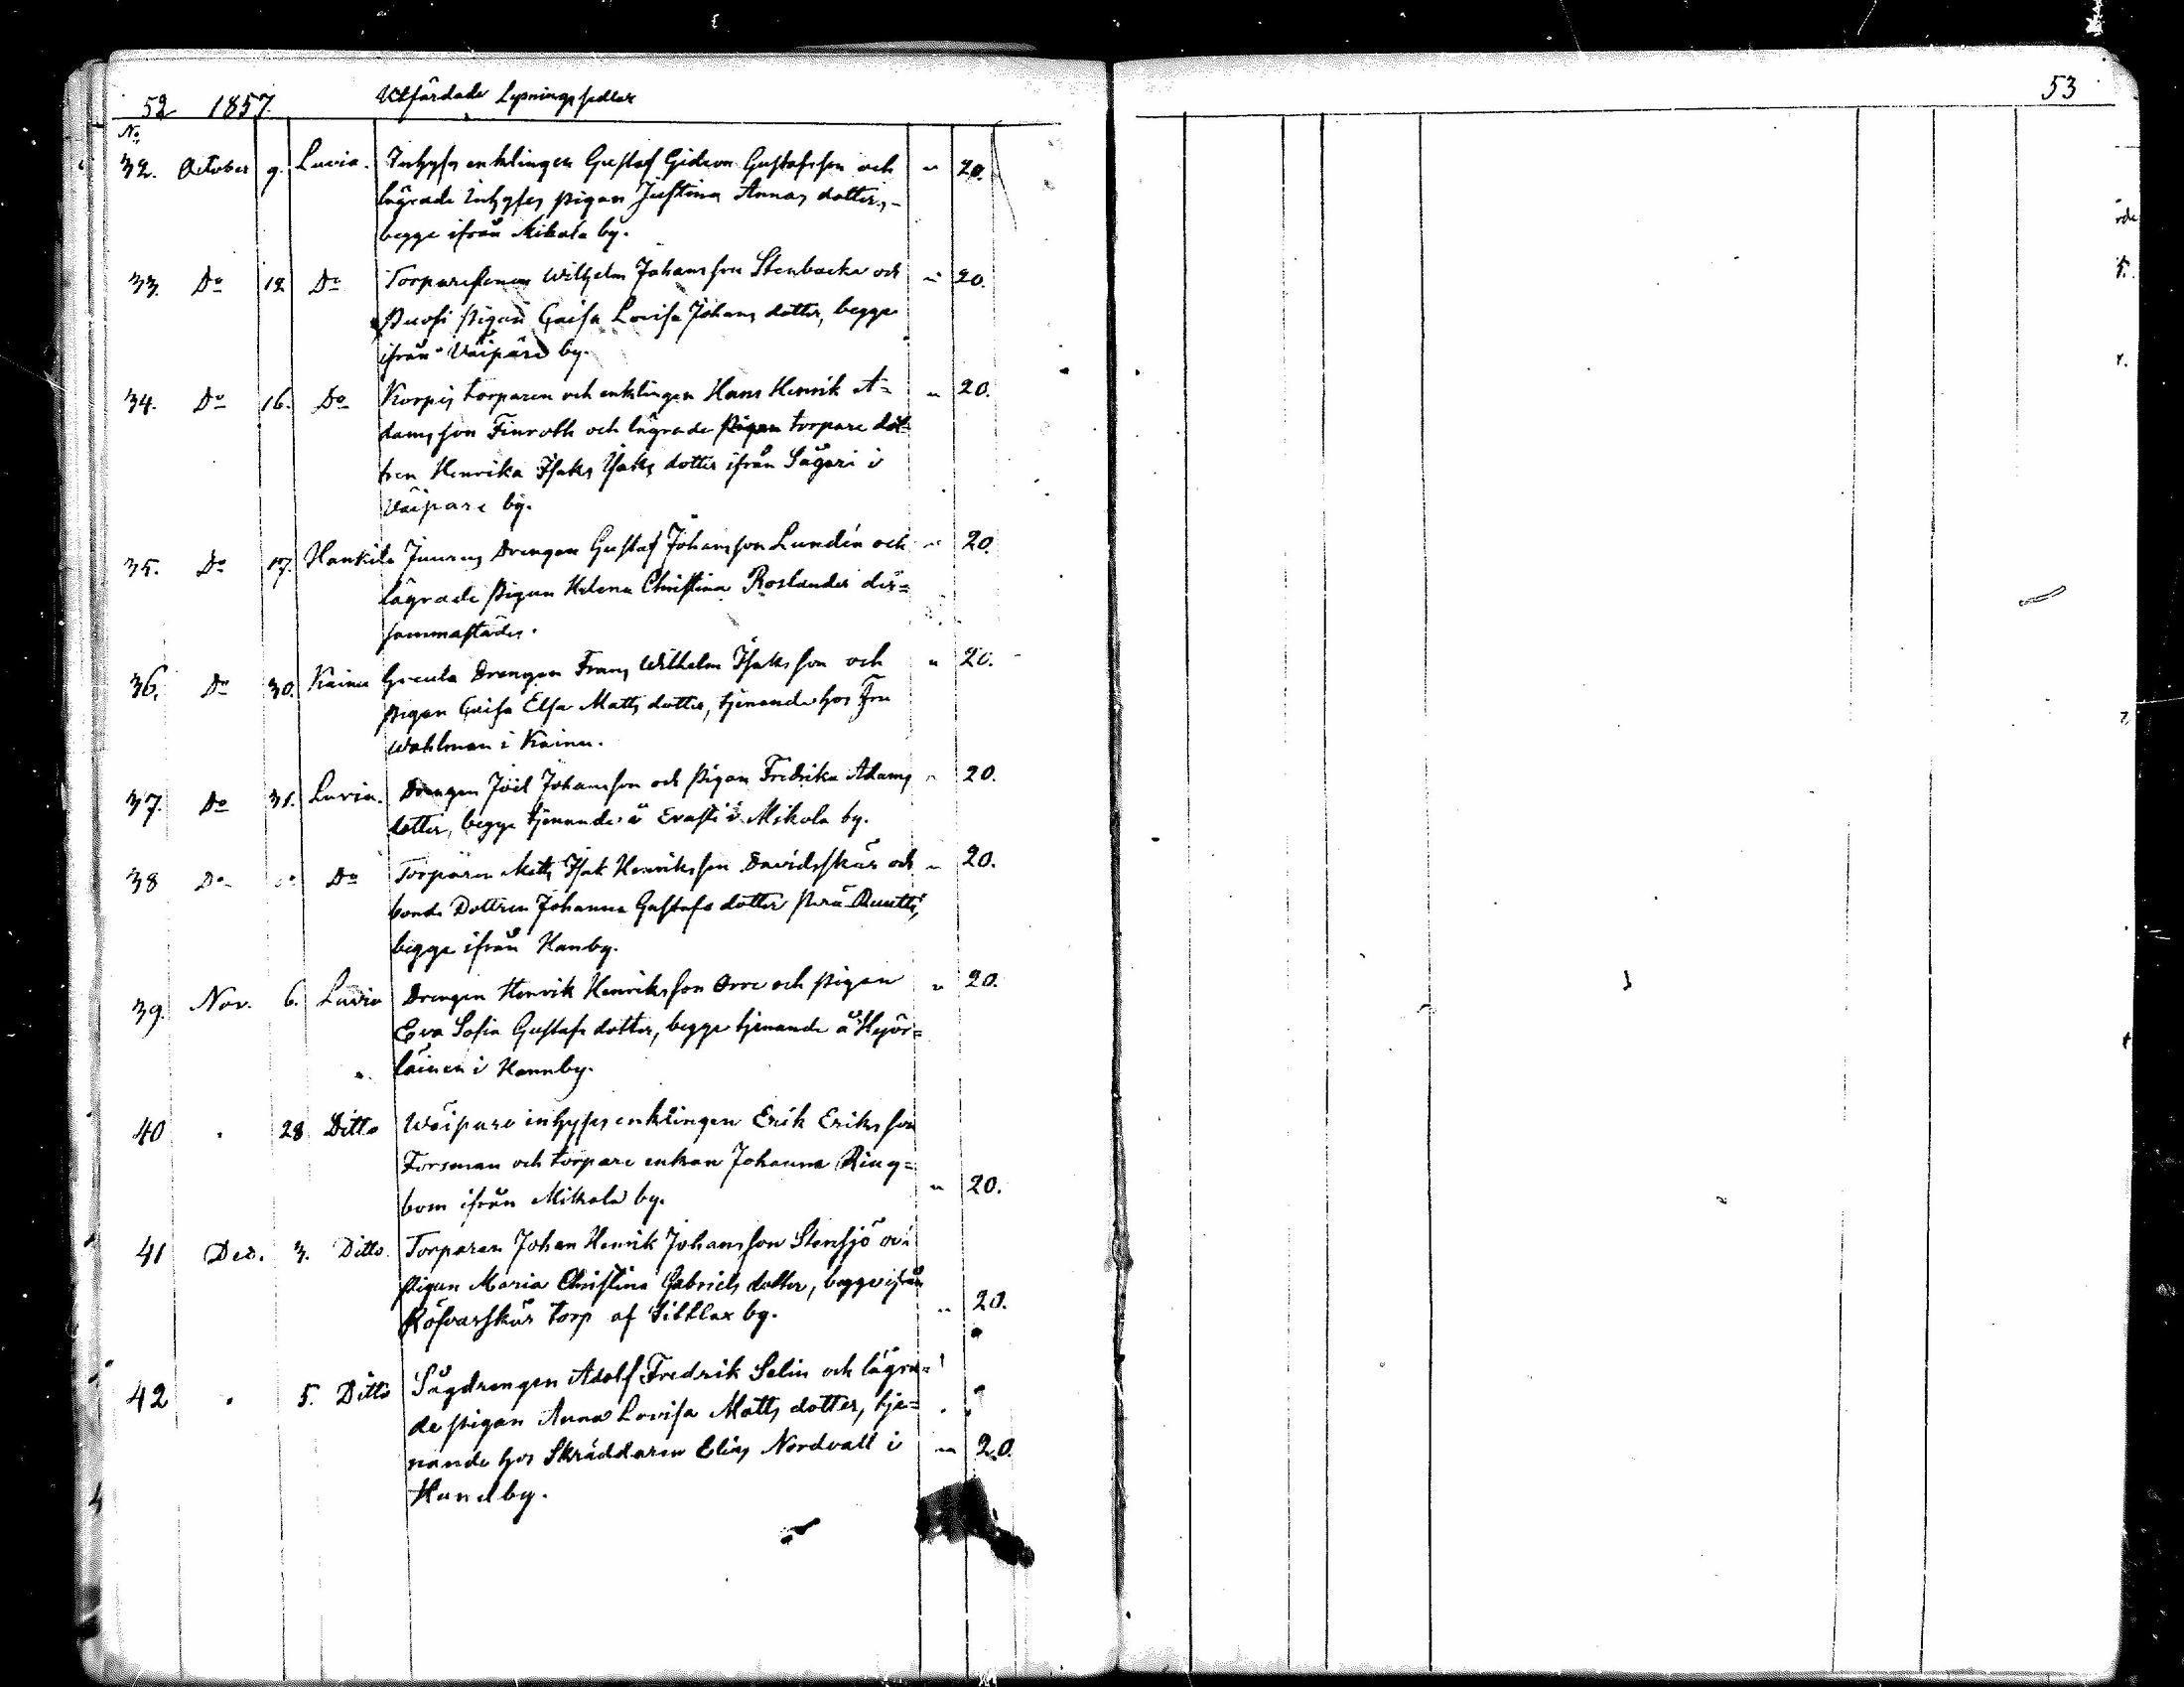 52 1857. Utfärdade Lysningssedlar
No
32. October 9. Luvia. Inhyses enklingen Gustaf Gideon Gustafsson och " 20.
lägrade Inhyses pigan Justina Annas dotter,
begge ifrån Mikola by.
33. Do 12 Do Torparesonen Wilhelm Johansson Stenbacka och " 20.
pigan Caisa Lovisa Johans dotter, begge
ifrån Väipäre by.
34. Do 16. Do Korpis torparen och enklingen Hans Henrik A= " 20.
damsson Finroth och lägrade torpare dot
tren Henrika Isaks Isaks dotter ifrån Sågari i
Väipare by.
35. Do 17. Hankila Juures Drengen Gustaf Johansson Lundén och " 20.
lägrade pigan Helena Christina Roslander der=
sammastädes.
36. Do 30. Kainu Greula Drengen Frans Wilhelm Isaksson och " 20.
pigan Caisa Elsa Matts dotter, tjenande hos Fru
Wahlman i Kainu.
37. Do 31. Luvia. Drengen Joël Johansson och pigan Fredrika Adams " 20.
dotter, begge tjenande å Erasti i Mikola by.
38 Do Do Do Torparen Matts Isak Henriksson Davidsskär och " 20.
bonde Dottren Johanna Gustafs dotter Perä-Ruutti,
begge ifrån Hanby.
39. Nov. 6. Luvia Drengen Henrik Henriksson Orre och pigan " 20.
Eva Sofia Gustafs dotter, begge tjenande å Hyör=
läinen i Hannby.
40 " 28 Ditto Wäipare inhyses enklingen Erik Eriksson
Forsman och torpare enkan Johanna Ring=
bom ifrån Mikola by. " 20.
41 Dec. 3. Ditto. Torparen Johan Henrik Johansson Stensjö och
pigan Maria Christina Gabriels dotter, begge ifrån
Röfvarskär torp af Sibblax by. " 20.
42 " 5. Ditto Sågdrengen Adolf Fredrik Selin och lägra=
de pigan Anna Lovisa Matts dotter, tje=
nande hos Skräddaren Elias Nordvall i " 20.
Hanelby.
53